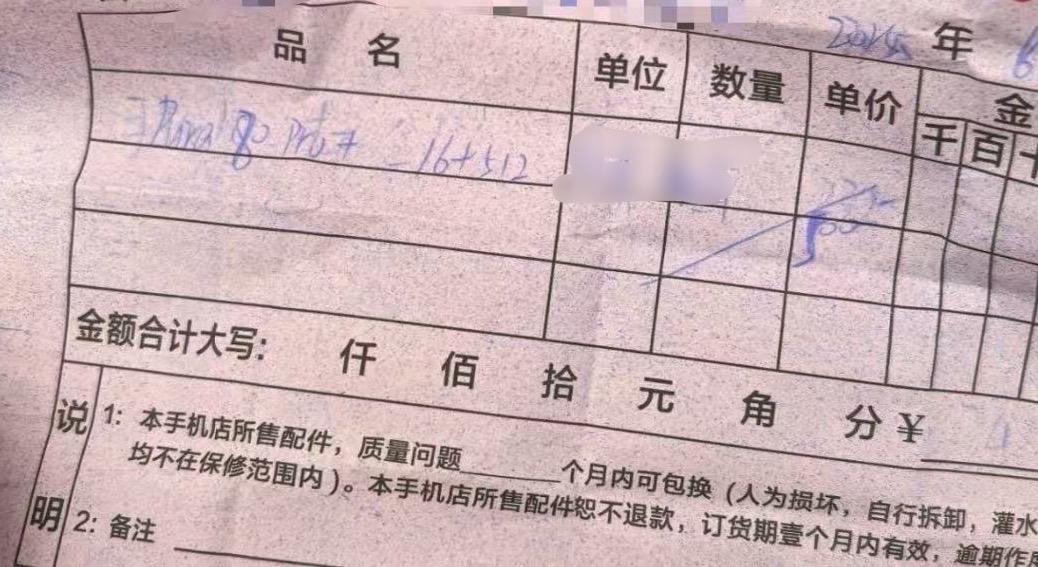 年 6
品 名 单位 数量 单价 金
千 百 十
80 Pro+ -16+512
500
金额合计大写: 仟 佰 拾 元 角 分 ¥
说明
1: 本手机店所售配件，质量问题______个月内可包换（人为损坏，自行拆卸，灌水
均不在保修范围内）。本手机店所售配件恕不退款，订货期壹个月内有效，逾期作
2: 备注